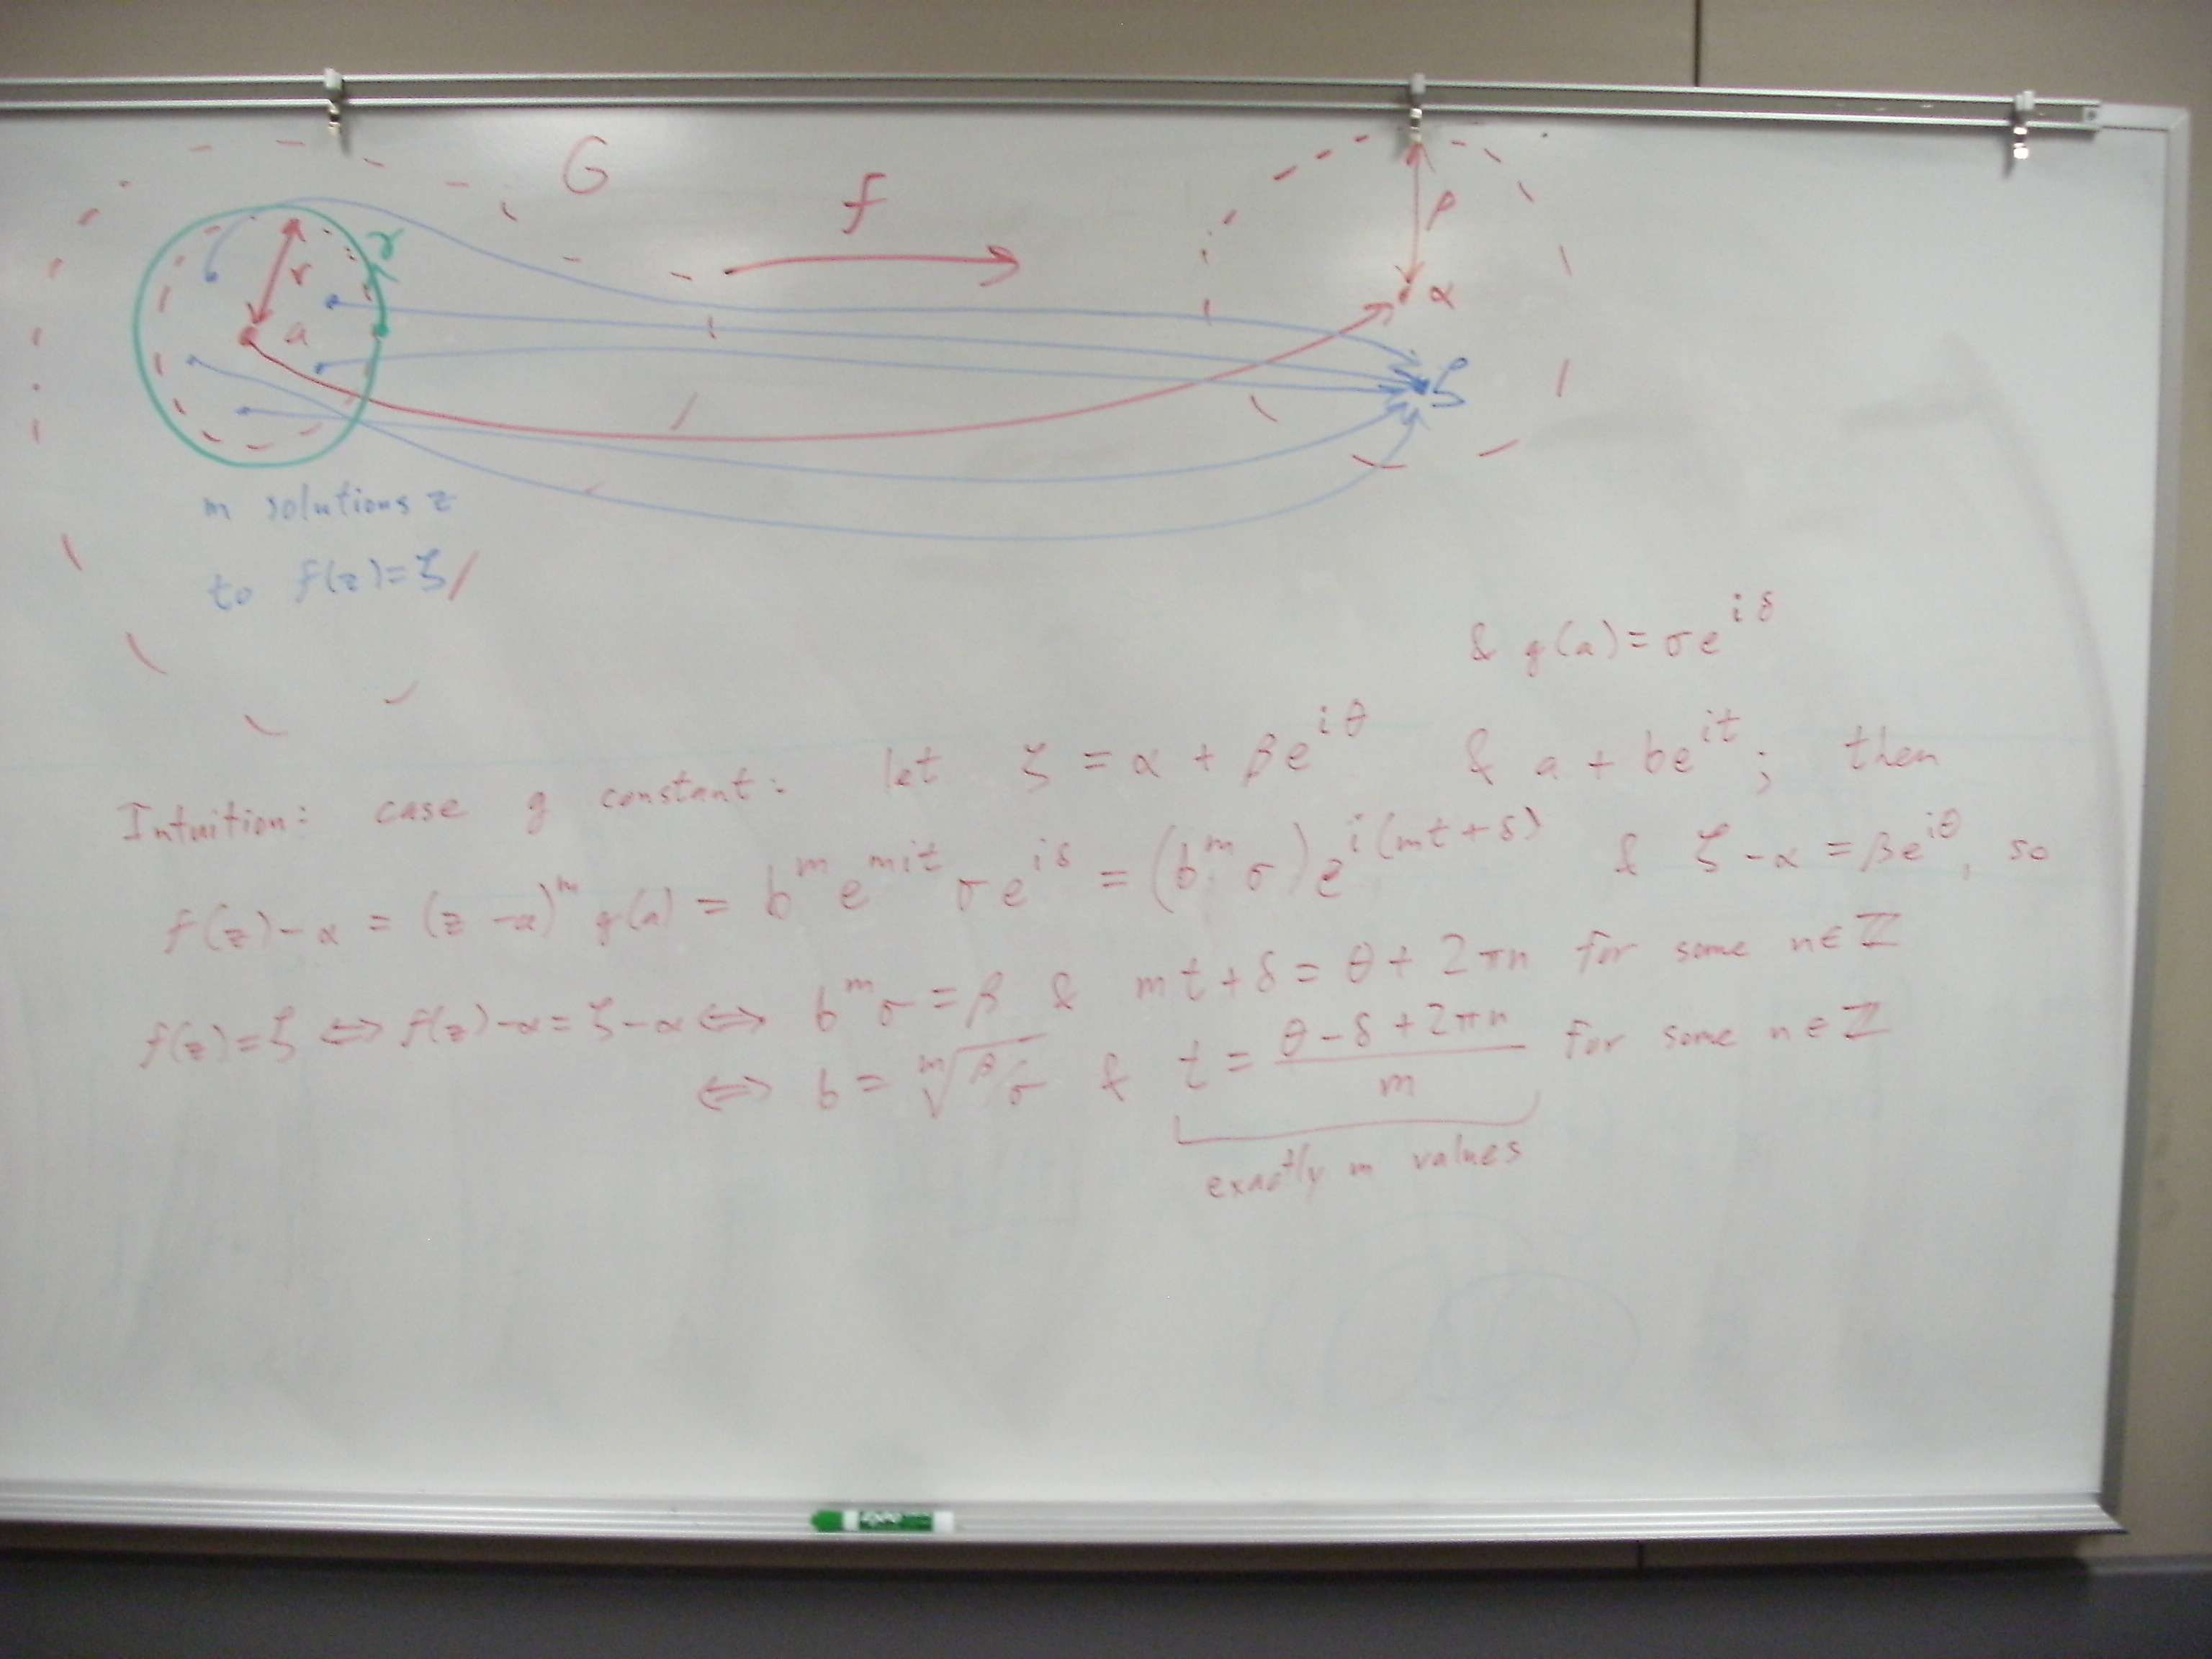 G
f
γ
r
a
ρ
α
ζ
m solutions z
to f(z)=ζ
& g(a)=σe^{iδ}
Intuition: case g constant: let ζ = α + βe^{iθ} & a + be^{it}; then
f(z)-α = (z-a)^m g(a) = b^m e^{mit} σe^{iδ} = (b^m σ)e^{i(mt+δ)} & ζ-α = βe^{iθ}, so
f(z)=ζ ⇔ f(z)-α = ζ-α ⇔ b^m σ = β & mt+δ = θ+2πn for some n∈ℤ
⇔ b = \sqrt[m]{β/σ} & t = \frac{θ-δ+2πn}{m} for some n∈ℤ
exactly m values